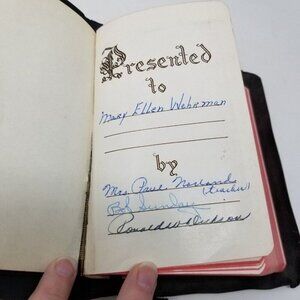 Presented
to
Mary Ellen Wehrman
by
Mrs. Paul Norland
(teacher)
Bob Sunday
Ronald W. Dickson